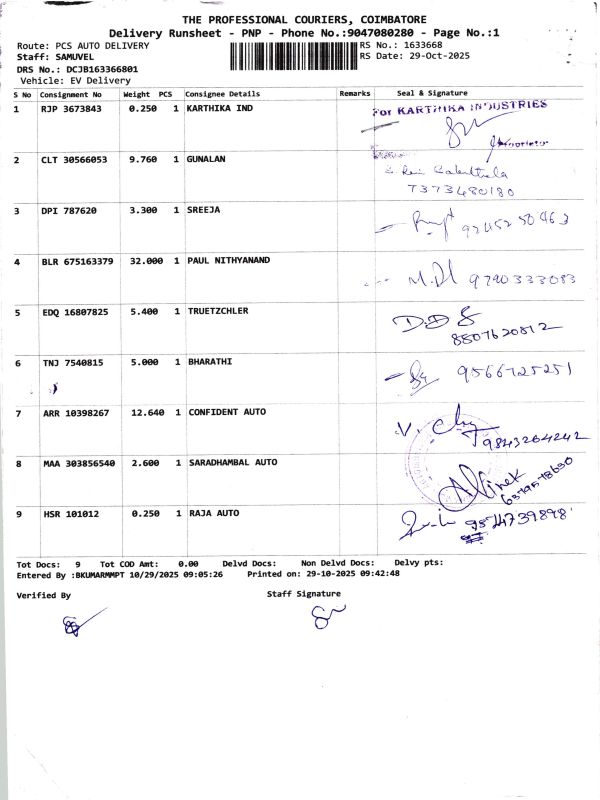 THE PROFESSIONAL COURIERS, COIMBATORE
Delivery Runsheet - PNP - Phone No.:9047080280 - Page No.:1
Route: PCS AUTO DELIVERY RS No.: 1633668
Staff: SAMUVEL RS Date: 29-Oct-2025
DRS No.: DCJB163366801
Vehicle: EV Delivery
S No Consignment No Weight PCS Consignee Details Remarks Seal & Signature
1 RJP 3673843 0.250 1 KARTHIKA IND For KARTHIKA INDUSTRIES
Proprietor
2 CLT 30566053 9.760 1 GUNALAN
7373480180
3 DPI 787620 3.300 1 SREEJA
4 BLR 675163379 32.000 1 PAUL NITHYANAND 9790333083
5 EDQ 16807825 5.400 1 TRUETZCHLER
8807620812
6 TNJ 7540815 5.000 1 BHARATHI 9566725251
7 ARR 10398267 12.640 1 CONFIDENT AUTO
9843264242
8 MAA 303856540 2.600 1 SARADHAMBAL AUTO
9 HSR 101012 0.250 1 RAJA AUTO
Tot Docs: 9 Tot COD Amt: 0.00 Delvd Docs: Non Delvd Docs: Delvy pts:
Entered By :BKUMARMMPT 10/29/2025 09:05:26 Printed on: 29-10-2025 09:42:48
Verified By Staff Signature